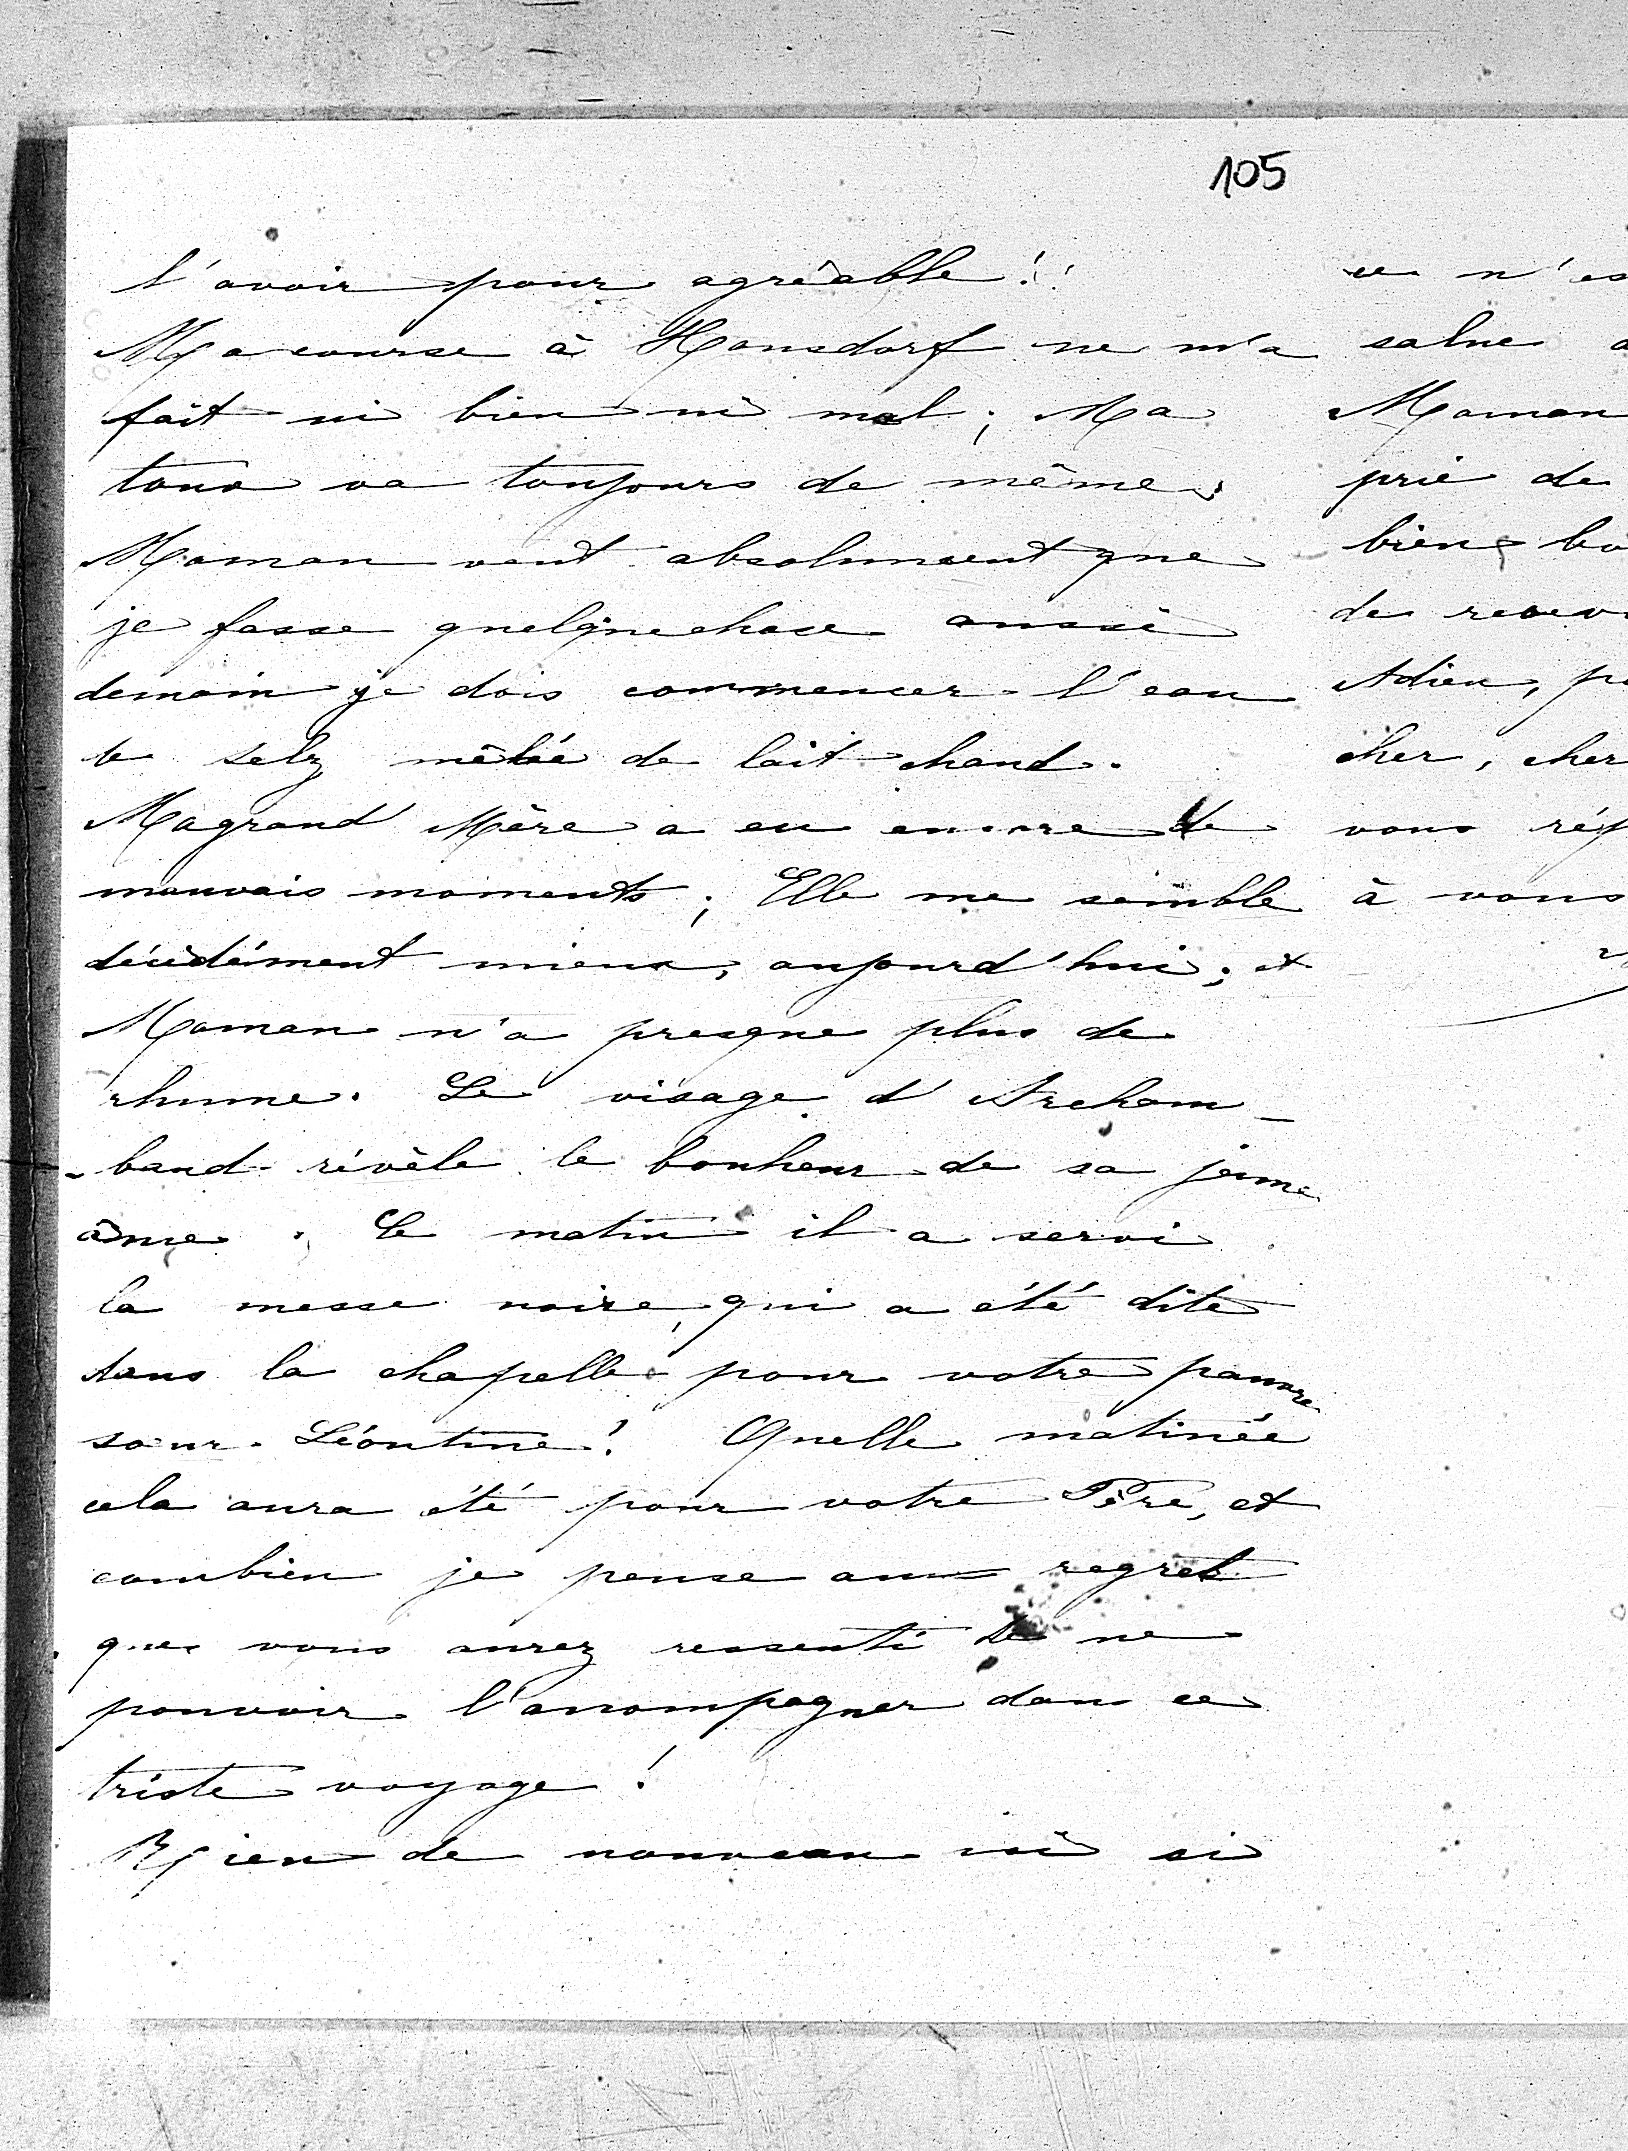 105
l'avoir pour agréable!!
Ma course à Hansdorf ne m'a
fait ni bien ni mal; Ma
toux va toujours de même.
Maman veut absolument que
je fasse quelquechose aussi
demain je dois commencer l'eau
de selz mêlée de lait chaud.
Magrand Mère a eu encore de
mauvais moments; Elle me semble
décidément mieux, aujourd'hui; et
Maman n'a presque plus de
rhume. Le visage d'Archam-
-baud révèle le bonheur de sa jeune
âme. Ce matin il a servi
la messe noire, qui a été dite
dans la chapelle pour votre pauvre
sœur Léontine! Quelle matinée
cela aura été pour votre Père, et
combien je pense au regret
que vous aurez ressenti de ne
pouvoir l'accompagner dans ce
triste voyage!
Rien de nouveau ici si
ce n'es
salue a
Maman
prie de
bien bo
de recev
Adieu, p
cher, cher
vous rép
à vous